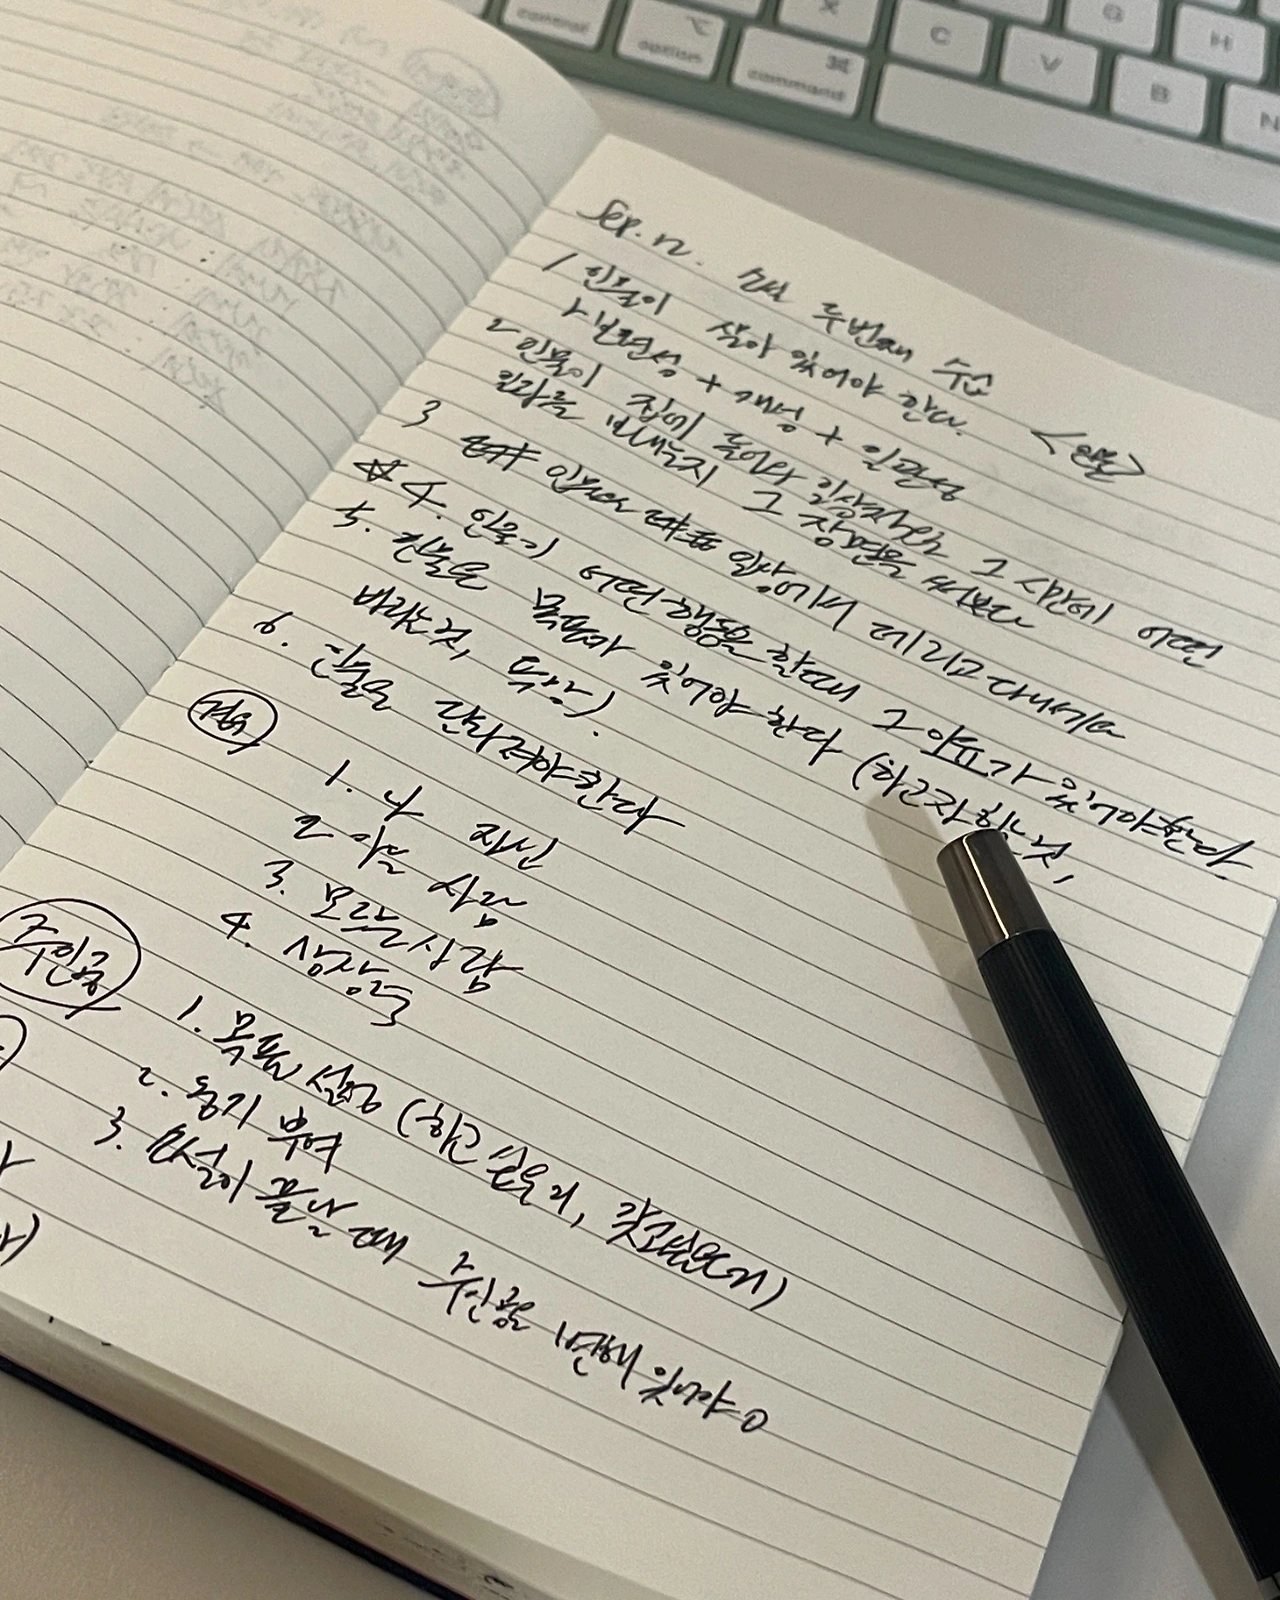 control
⌥
option
⌘
command
X
C
V
G
B
H
N
Sep. 12. 소설 두번째 수업 <인물>
1 인물이 살아 있어야 한다.
보편성 + 개성 + 일관성
2 인물이 집에 들어와 일상적인 그 시간에 어떤
하루를 보내는지 그 장면을 써보다
3 인물을 일상에서 데리고 다니세요
☆ 4. 인물이 어떤 행동을 할때 그 이유가 있어야한다.
5. 인물은 목표가 있어야 한다 (하고자 하는 것,
바라는 것, 욕망).
6. 인물은 달라져야한다
1. 나 자신
2 아는 사람
3. 모르는 사람
4. 상상력
주인공
1. 목표 설정 (하고 싶은거, 갖고싶은거)
2. 동기 부여
3. 소설이 끝날때 주인공은 변해 있어야 o